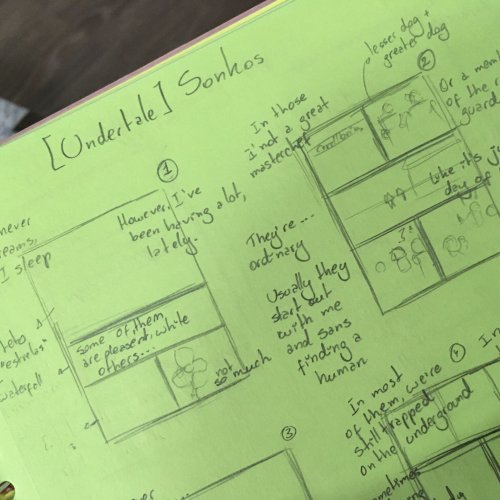 [Undertale] Sonhos
1
never
I sleep
However, I've
been having a lot,
lately.
"estrelas"
waterfall
some of them
are pleasent, while
others...
not
so much
lesser dog +
greater dog
2
In those
I'm not a great
masterchef
Or a mem
of the r
guard
Like it's j
day of
They're...
ordinary
Usually they
start out
with me
and Sans
finding a
human
3
4
In most
of them, we're
still trapped
on the underground